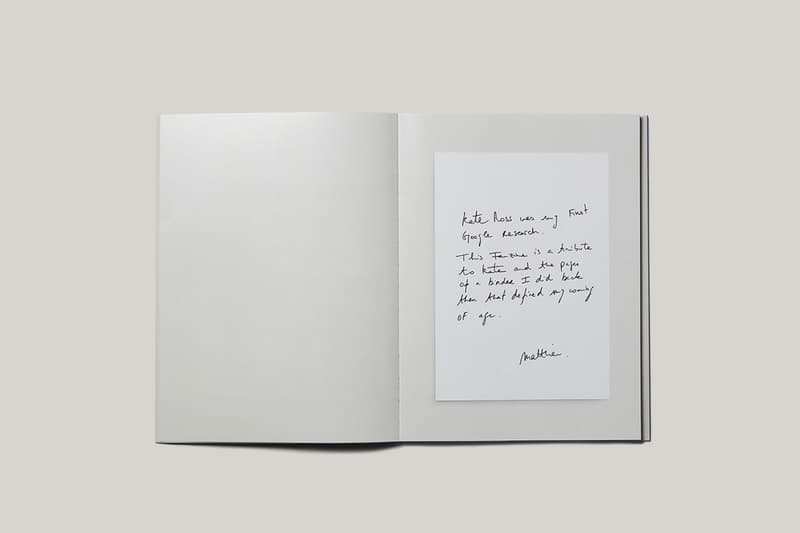 Kate Moss was my First
Google Research.
This Fanzine is a tribute
to Kate and the pages
of a binder I did back
then that defined my coming
of age.
Matthieu.